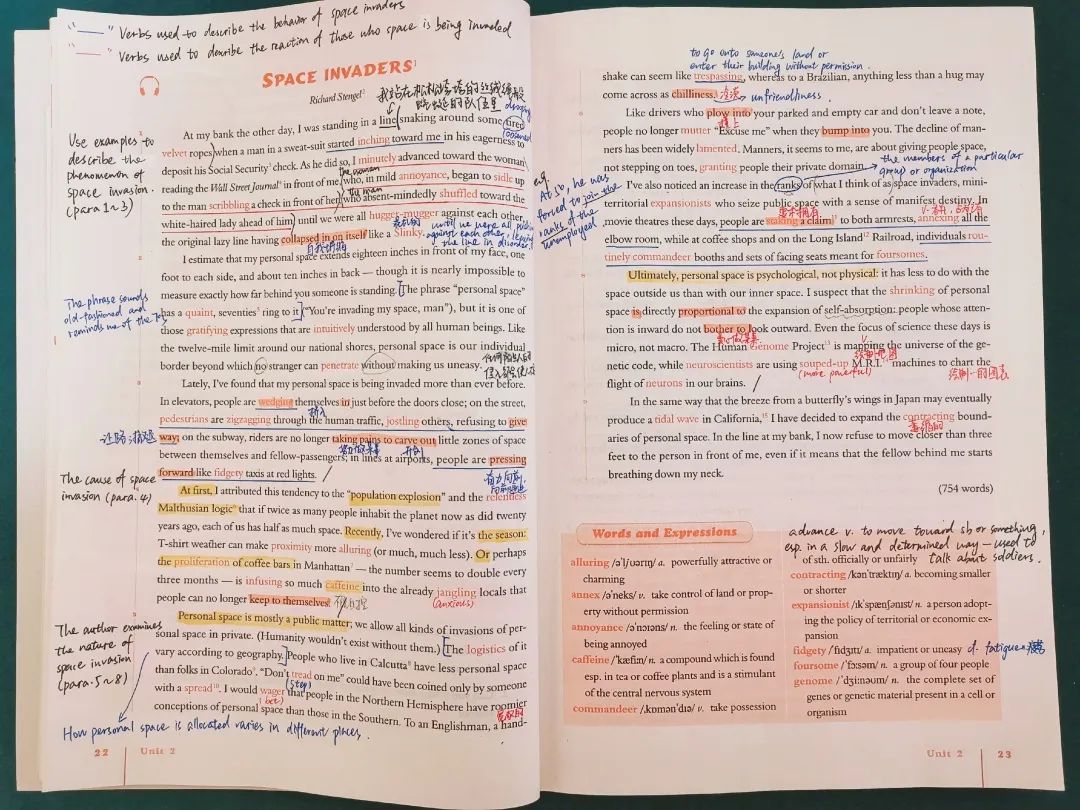 "——" Verbs used to describe the behavior of space invaders
"——" Verbs used to describe the reaction of those who space is being invaded
SPACE INVADERS¹
Richard Stengel²
我站在松松垮垮的丝绒绳般
蜿蜒的队伍里
At my bank the other day, I was standing in a line snaking around some tired
velvet ropes when a man in a sweat-suit started inching toward me in his eagerness to
deposit his Social Security³ check. As he did so, I minutely advanced toward the woman
reading the Wall Street Journal⁴ in front of me, who, in mild annoyance, began to sidle up
to the man scribbling a check in front of her, who absent-mindedly shuffled toward the
white-haired lady ahead of him, until we were all hugger-mugger against each other,
the original lazy line having collapsed in on itself like a Slinky.
the woman
the man
until we were all pushed
against each other, leaving
the line in disorder.
Use examples to
describe the
phenomenon of
space invasion.
(para 1~3)
I estimate that my personal space extends eighteen inches in front of my face, one
foot to each side, and about ten inches in back — though it is nearly impossible to
measure exactly how far behind you someone is standing. The phrase "personal space"
has a quaint, seventies⁵ ring to it ("You're invading my space, man"), but it is one of
those gratifying expressions that are intuitively understood by all human beings. Like
the twelve-mile limit around our national shores, personal space is our individual
border beyond which no stranger can penetrate without making us uneasy.
The phrase sounds
old-fashioned and
reminds me of the 70s
Lately, I've found that my personal space is being invaded more than ever before.
In elevators, people are wedging themselves in just before the doors close; on the street,
挤入
pedestrians are zigzagging through the human traffic, jostling others, refusing to give
way; on the subway, riders are no longer taking pains to carve out little zones of space
between themselves and fellow-passengers; in lines at airports, people are pressing
forward like fidgety taxis at red lights.
The cause of space
invasion (para. 4)
At first, I attributed this tendency to the "population explosion" and the relentless
Malthusian logic⁶ that if twice as many people inhabit the planet now as did twenty
years ago, each of us has half as much space. Recently, I've wondered if it's the season:
T-shirt weather can make proximity more alluring (or much, much less). Or perhaps
the proliferation of coffee bars in Manhattan⁷ — the number seems to double every
three months — is infusing so much caffeine into the already jangling locals that
(anxious)
people can no longer keep to themselves.
Personal space is mostly a public matter; we allow all kinds of invasions of per-
sonal space in private. (Humanity wouldn't exist without them.) The logistics of it
vary according to geography. People who live in Calcutta⁸ have less personal space
than folks in Colorado⁹. "Don't tread on me" could have been coined only by someone
(step)
with a spread¹⁰. I would wager that people in the Northern Hemisphere have roomier
(bet)
conceptions of personal space than those in the Southern. To an Englishman, a hand-
The author examines
the nature of
space invasion
(para. 5~8)
How personal space is allocated varies in different places.
22 Unit 2
to go onto someone's land or
enter their building without permission.
shake can seem like trespassing, whereas to a Brazilian, anything less than a hug may
come across as chilliness.
冷漠 unfriendliness.
Like drivers who plow into your parked and empty car and don't leave a note,
撞上
people no longer mutter "Excuse me" when they bump into you. The decline of man-
ners has been widely lamented. Manners, it seems to me, are about giving people space,
not stepping on toes, granting people their private domain.
the members of a particular
group or organization
I've also noticed an increase in the ranks of what I think of as space invaders, mini-
territorial expansionists who seize public space with a sense of manifest destiny. In
movie theatres these days, people are staking a claim¹¹ to both armrests, annexing all the
elbow room, while at coffee shops and on the Long Island¹² Railroad, individuals rou-
tinely commandeer booths and sets of facing seats meant for foursomes.
e.g.
At 16, he was
forced to join the
ranks of the
unemployed
Ultimately, personal space is psychological, not physical: it has less to do with the
space outside us than with our inner space. I suspect that the shrinking of personal
space is directly proportional to the expansion of self-absorption: people whose atten-
tion is inward do not bother to look outward. Even the focus of science these days is
micro, not macro. The Human Genome Project¹³ is mapping the universe of the ge-
netic code, while neuroscientists are using souped-up M.R.I.¹⁴ machines to chart the
(more powerful)
flight of neurons in our brains.
In the same way that the breeze from a butterfly's wings in Japan may eventually
produce a tidal wave in California,¹⁵ I have decided to expand the contracting bound-
aries of personal space. In the line at my bank, I now refuse to move closer than three
feet to the person in front of me, even if it means that the fellow behind me starts
breathing down my neck.
(754 words)
Words and Expressions
alluring /ə'ljʊərɪŋ/ a. powerfully attractive or
charming
annex /ə'neks/ v. take control of land or prop-
erty without permission
annoyance /ə'nɔɪəns/ n. the feeling or state of
being annoyed
caffeine /'kæfi:n/ n. a compound which is found
esp. in tea or coffee plants and is a stimulant
of the central nervous system
commandeer /ˌkɒmən'dɪə/ v. take possession
advance v. to move toward sb or something,
esp. in a slow and determined way — used to
talk about soldiers.
of sth. officially or unfairly
contracting /kən'træktɪŋ/ a. becoming smaller
or shorter
expansionist /ɪk'spænʃənɪst/ n. a person adopt-
ing the policy of territorial or economic ex-
pansion
fidgety /'fɪdʒɪtɪ/ a. impatient or uneasy
foursome /'fɔ:səm/ n. a group of four people
genome /'dʒi:nəʊm/ n. the complete set of
genes or genetic material present in a cell or
organism
Unit 2 23